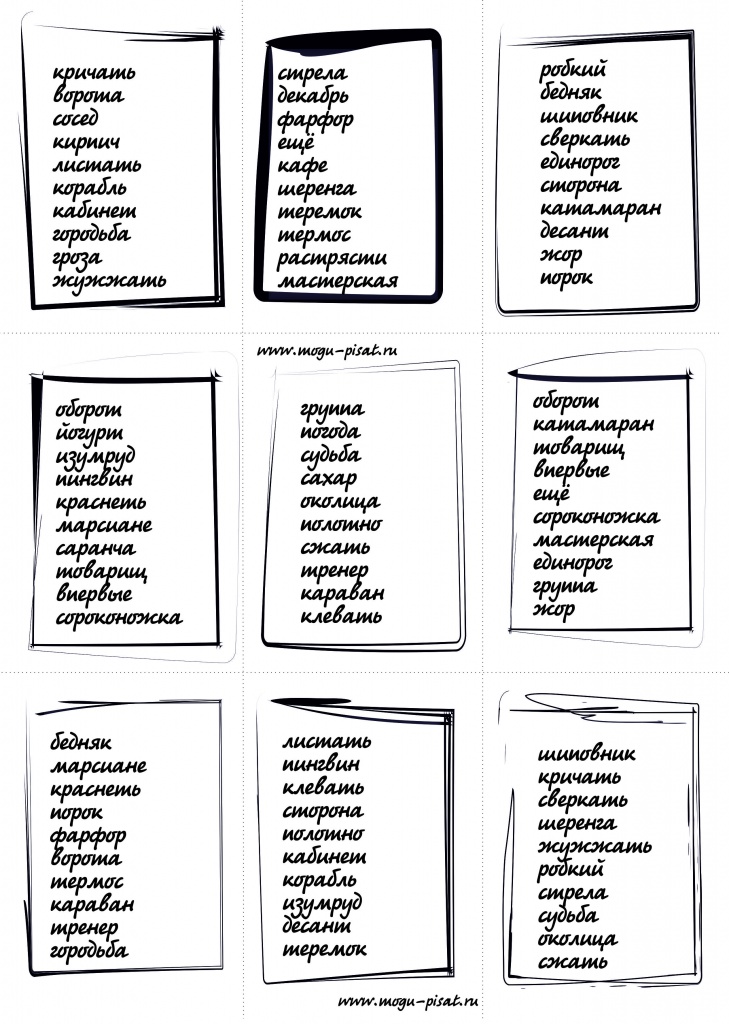 кричать
ворота
сосед
кирпич
листать
корабль
кабинет
городьба
гроза
жужжать
стрела
декабрь
фарфор
ещё
кафе
шеренга
теремок
термос
растрясти
мастерская
робкий
бедняк
шиповник
сверкать
единорог
сторона
катамаран
десант
жор
порок
оборот
йогурт
изумруд
пингвин
краснеть
марсиане
саранча
товарищ
впервые
сороконожка
www.mogu-pisat.ru
группа
погода
судьба
сахар
околица
полотно
сжать
тренер
караван
клевать
оборот
катамаран
товарищ
впервые
ещё
сороконожка
мастерская
единорог
группа
жор
бедняк
марсиане
краснеть
порок
фарфор
ворота
термос
караван
тренер
городьба
листать
пингвин
клевать
сторона
полотно
кабинет
корабль
изумруд
десант
теремок
шиповник
кричать
сверкать
шеренга
жужжать
робкий
стрела
судьба
околица
сжать
www.mogu-pisat.ru